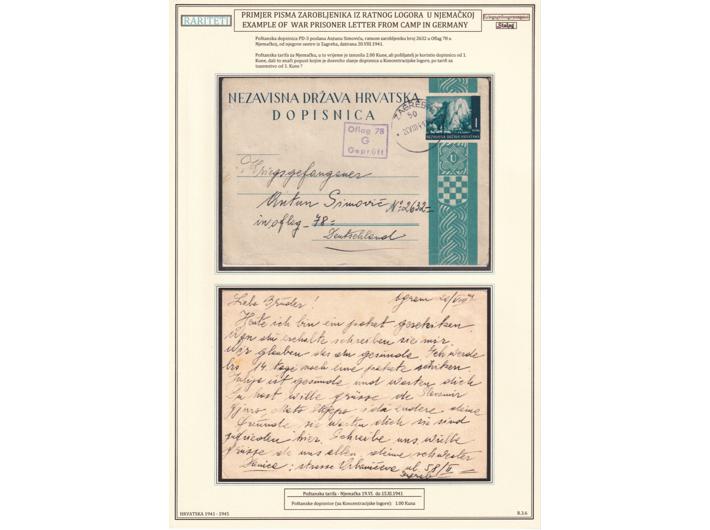 RARITETI
PRIMJER PISMA ZAROBLJENIKA IZ RATNOG LOGORA U NJEMAČKOJ
EXAMPLE OF WAR PRISONER LETTER FROM CAMP IN GERMANY
Stalag
Poštanska dopisnica PD-3 poslana Antunu Simoviću, ratnom zarobljeniku broj 2632 u Oflag 78 u
Njemačkoj, od njegove sestre iz Zagreba, datirana 20.VIII.1941.
Poštanska tarifa za Njemačku, u to vrijeme je iznosila 2.00 Kune, ali pošiljatelj je koristio dopisnicu od 1.
Kune, dali to znači popust kojim je dozvolio slanje dopisnica u Koncentracijske logore, po tarifi za
tuzemstvo od 1. Kune ?
NEZAVISNA DRŽAVA HRVATSKA
DOPISNICA
ZAGREB
50
1
NEZAVISNA DRŽAVA HRVATSKA
Oflag 78
G
Geprüft
U
Kriegsgefangener
Antun Simović No 2632
in oflag 78
Deutschland
Liebe Bruder! Agram 20/VIII
Heute ich bin ein paket
du erhalte schreiben sie mir.
wir glauben das du gesunde. Ich werde
bis 14 tage noch eine pakete schiken.
ist gesunde und warten dich
Du hast grüsse de Slavomir
Gjuro, Mato Steppo i da andere deine
Freunde, sie warten dich sie sind
zufrieden hier. Schreibe uns
grüsse de uns allen, deine schwester
Danica; strasse Vrbanićeva ul 58/II
Zagreb
Poštanska tarifa - Njemačka 19.VI. do 15.XI.1941.
Poštanske dopisnice (za Koncentracijske logore) 1.00 Kuna
HRVATSKA 1941 - 1945
R.3.6